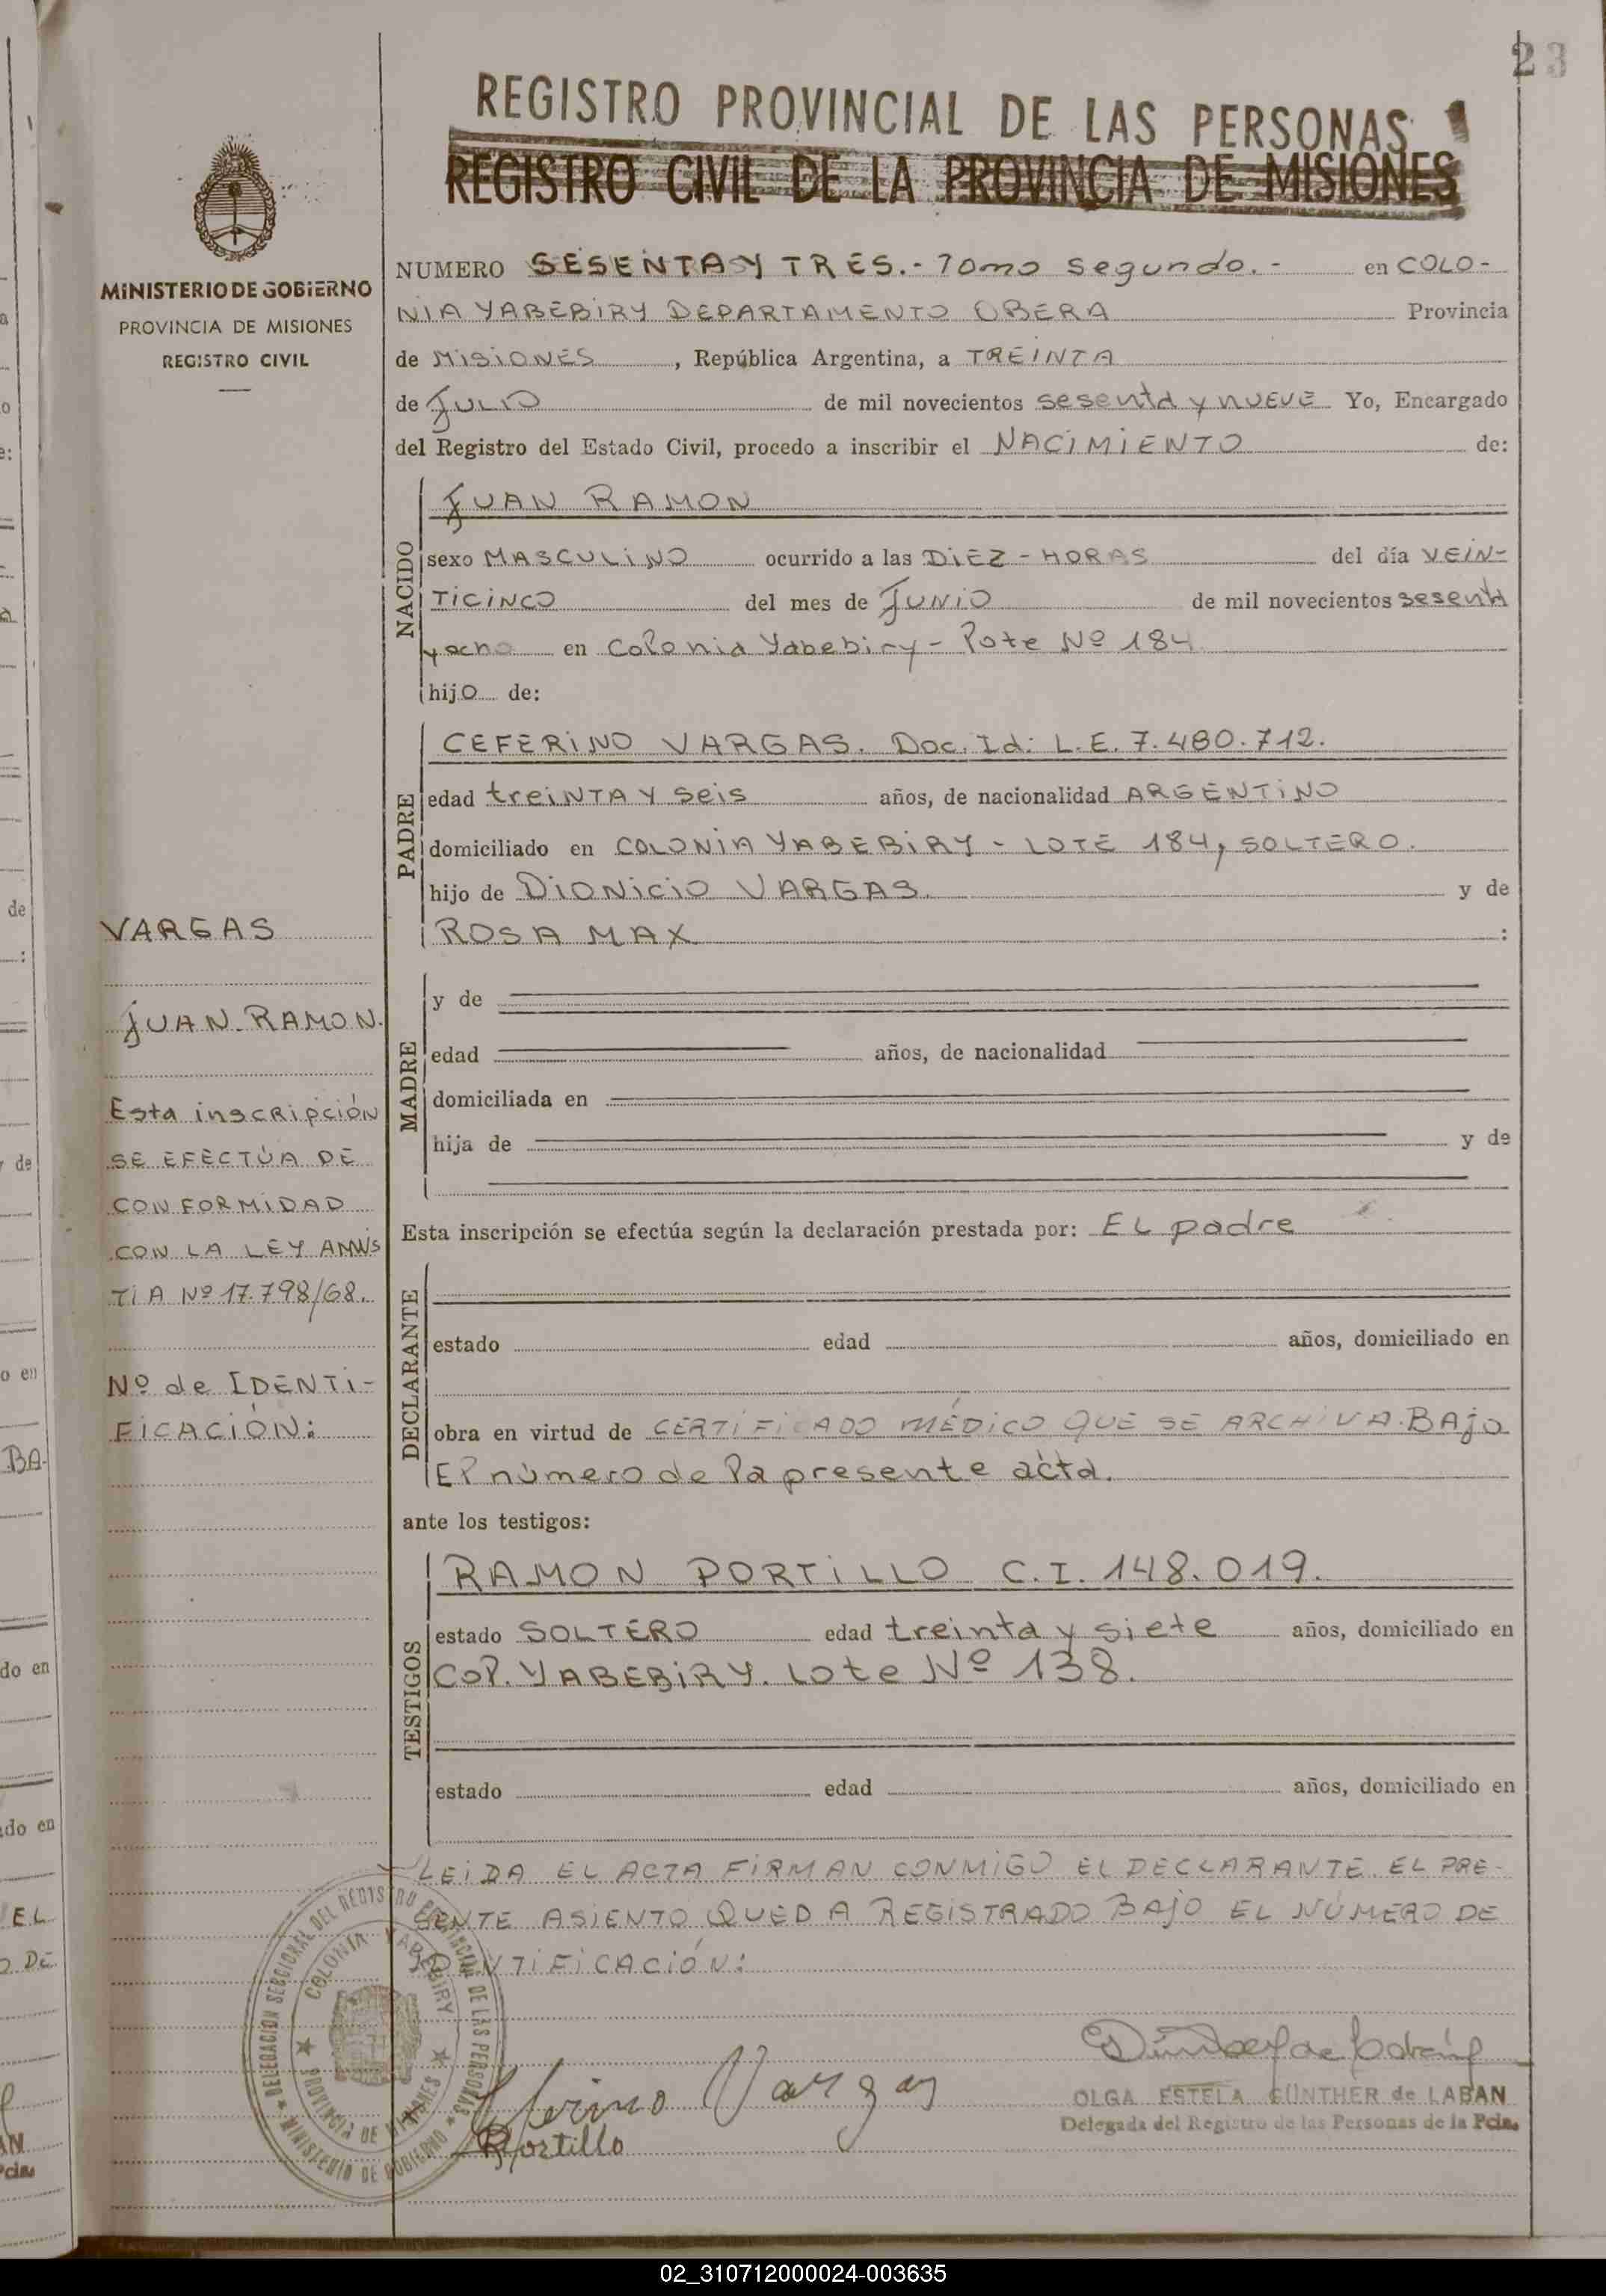 23
REGISTRO PROVINCIAL DE LAS PERSONAS
REGISTRO CIVIL DE LA PROVINCIA DE MISIONES
MINISTERIO DE GOBIERNO
PROVINCIA DE MISIONES
REGISTRO CIVIL
NUMERO SESENTA Y TRES.- Tomo segundo.- en COLO-
NIA YABEBIRY DEPARTAMENTO OBERA Provincia
de MISIONES, República Argentina, a TREINTA
de JULIO de mil novecientos sesenta y nueve Yo, Encargado
del Registro del Estado Civil, procedo a inscribir el NACIMIENTO de:
NACIDO
JUAN RAMON
sexo MASCULINO ocurrido a las DIEZ - HORAS del día VEIN-
TICINCO del mes de JUNIO de mil novecientos sesenta
y ocho en Colonia Yabebiry - lote Nº 184
hijo de:
PADRE
CEFERINO VARGAS. Doc. Id: L.E. 7.480.712.
edad treinta y seis años, de nacionalidad ARGENTINO
domiciliado en COLONIA YABEBIRY - LOTE 184, SOLTERO.
hijo de DIONICIO VARGAS. y de
ROSA MAX :
MADRE
y de
edad años, de nacionalidad
domiciliada en
hija de y de
VARGAS
JUAN RAMON.
Esta inscripción
SE EFECTÚA DE
CONFORMIDAD
CON LA LEY AMNIS
TIA Nº 17.798/68.
Nº de IDENTI-
FICACIÓN:
Esta inscripción se efectúa según la declaración prestada por: EL padre
DECLARANTE
estado edad años, domiciliado en
obra en virtud de CERTIFICADO MÉDICO QUE SE ARCHIVA BAJO
El número de la presente acta.
ante los testigos:
TESTIGOS
RAMON PORTILLO C.I. 148.019.
estado SOLTERO edad treinta y siete años, domiciliado en
Col. YABEBIRY. Lote Nº 138.
estado edad años, domiciliado en
LEIDA EL ACTA FIRMAN CONMIGO EL DECLARANTE. EL PRE-
SENTE ASIENTO QUEDA REGISTRADO BAJO EL NÚMERO DE
IDENTIFICACIÓN:
DELEGACION SECCIONAL DEL REGISTRO PROVINCIAL DE LAS PERSONAS
MINISTERIO DE GOBIERNO
COLONIA YABEBIRY
PROVINCIA DE MISIONES
Seferino Vargas
Portillo
OLGA ESTELA GÜNTHER de LABAN
Delegada del Registro de las Personas de la Pcia.
02_310712000024-003635